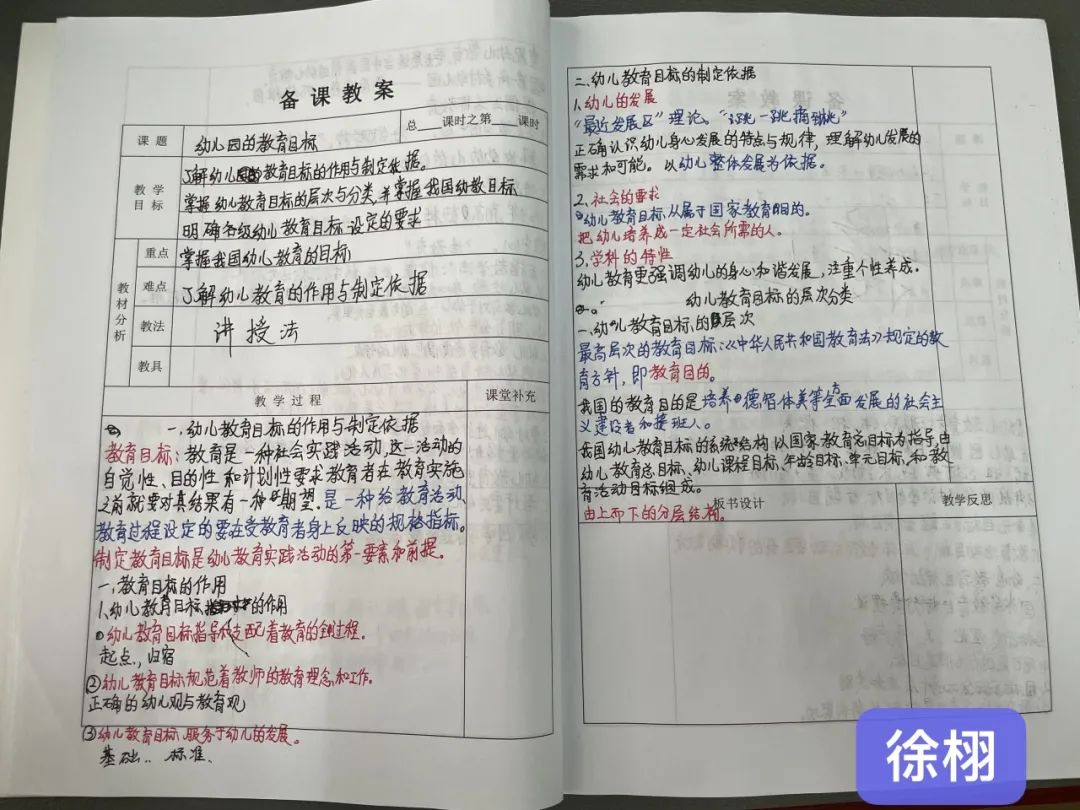 备课教案
课题
幼儿园的教育目标
总___课时之第___课时
教学目标
了解幼儿教育目标的作用与制定依据。
掌握幼儿教育目标的层次与分类,并掌握我国幼教目标
明确各级幼儿教育目标设定的要求
教材分析
重点
掌握我国幼儿教育的目标
难点
了解幼儿教育的作用与制定依据
教法
讲授法
教具
教学过程
课堂补充
一、幼儿教育目标的作用与制定依据
教育目标:教育是一种社会实践活动,这一活动的
自觉性、目的性和计划性要求教育者在教育实施
之前就要对其结果有一种期望。是一种给教育活动、
教育过程设定的要在受教育者身上反映的规格指标。
制定教育目标是幼儿教育实践活动的第一要素和前提。
一、教育目标的作用
1、幼儿教育目标的作用
①幼儿教育目标指导和支配着教育的全过程。
起点、归宿
②幼儿教育目标规范着教师的教育理念和工作。
正确的幼儿观与教育观
③幼儿教育目标服务于幼儿的发展。
基础.. 标准、
二、幼儿教育目标的制定依据
1、幼儿的发展
“最近发展区”理论。“跳一跳摘到桃”
正确认识幼儿身心发展的特点与规律,理解幼儿发展的
需求和可能。以幼儿整体发展为依据。
2、社会的要求
幼儿教育目标从属于国家教育目的。
把幼儿培养成一定社会所需的人。
3、学科的特性
幼儿教育更强调幼儿的身心和谐发展,注重个性养成。
幼儿教育目标的层次分类
一、幼儿教育目标的层次
最高层次的教育目标:《中华人民共和国教育法》规定的教
育方针,即教育目的。
我国的教育目的是培养德智体美等方面全面发展的社会主
义建设者和接班人。
我国幼儿教育目标的系统结构以国家教育总目标为指导,由
幼儿教育总目标、幼儿课程目标、年龄目标、单元目标、和教
育活动目标组成。
由上而下的分层结构。
板书设计
教学反思
徐栩